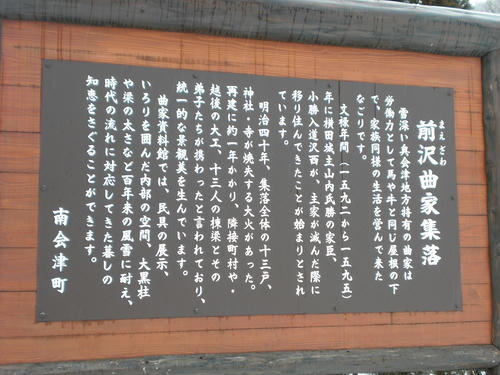 前沢曲家集落
まえざわ
雪深い奥会津地方特有の曲家は
労働力として馬や牛と同じ屋根の下
で、家族同様の生活を営んで来た
なごりです。
文禄年間（一五九二から一五九五）
年に横田城主山内氏勝の家臣、
小勝入道沢西が、主家が滅んだ際に
移り住んできたことが始まりとされ
ています。
明治四十年、集落全体の十三戸、
神社・寺が焼失する大火があった。
再建に約一年かかり、隣接町村や・
越後の大工、十三人の棟梁とその
弟子たちが携わったと言われており、
統一的な景観美を生んでいます。
曲家資料館では、民具の展示、
いろりを囲んだ内部の空間、大黒柱
や梁の太さなど百年来の風雪に耐え、
時代の流れに対応してきた暮しの
知恵をさぐることができます。
南会津町